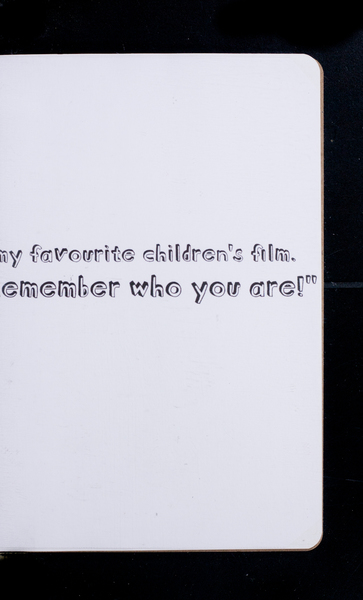 my favourite children's film.
emember who you are!"